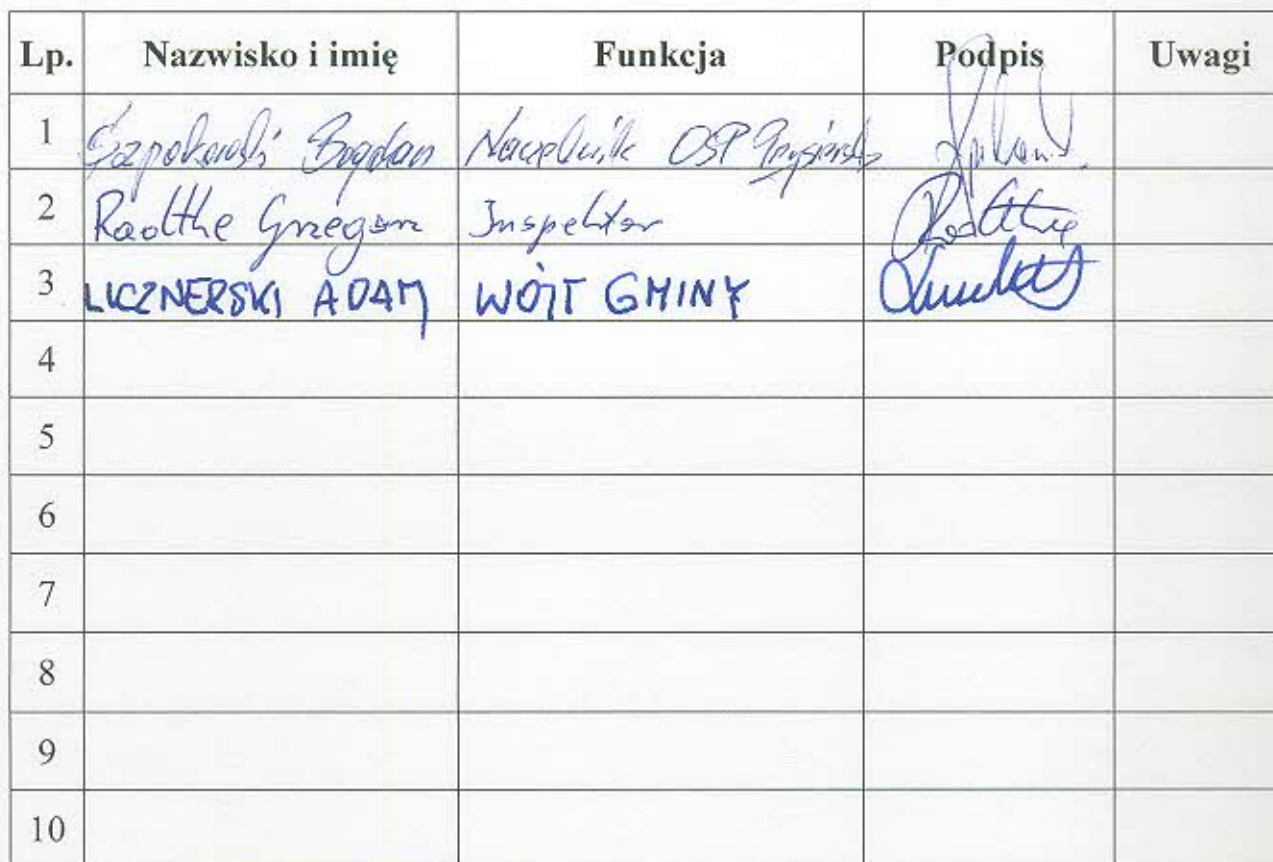 Lp. Nazwisko i imię Funkcja Podpis Uwagi
1 Szpakowski Bogdan Naczelnik OSP
2 Radtke Grzegorz Inspektor
3 LICZNERSKI ADAM WÓJT GMINY
4
5
6
7
8
9
10